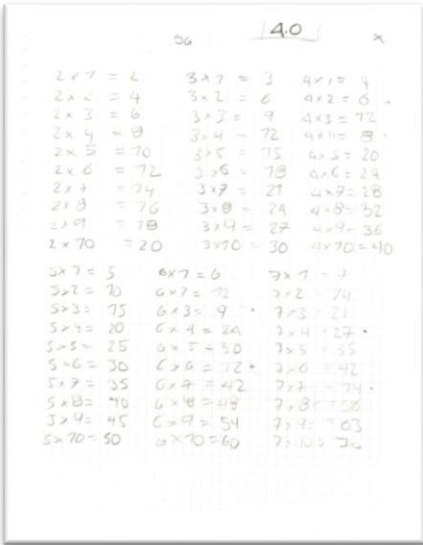 56
4.0
2 x 1 = 2
2 x 2 = 4
2 x 3 = 6
2 x 4 = 8
2 x 5 = 10
2 x 6 = 12
2 x 7 = 14
2 x 8 = 16
2 x 9 = 18
2 x 10 = 20
3 x 1 = 3
3 x 2 = 6
3 x 3 = 9
3 x 4 = 12
3 x 5 = 15
3 x 6 = 18
3 x 7 = 21
3 x 8 = 24
3 x 9 = 27
3 x 10 = 30
4 x 1 = 4
4 x 2 = 6
4 x 3 = 12
4 x 4 = 8
4 x 5 = 20
4 x 6 = 24
4 x 7 = 28
4 x 8 = 32
4 x 9 = 36
4 x 10 = 40
5 x 1 = 5
5 x 2 = 10
5 x 3 = 15
5 x 4 = 20
5 x 5 = 25
5 x 6 = 30
5 x 7 = 35
5 x 8 = 40
5 x 9 = 45
5 x 10 = 50
6 x 1 = 6
6 x 2 = 12
6 x 3 = 9
6 x 4 = 24
6 x 5 = 30
6 x 6 = 12
6 x 7 = 42
6 x 8 = 48
6 x 9 = 54
6 x 10 = 60
7 x 1 = 7
7 x 2 = 14
7 x 3 = 21
7 x 4 = 27
7 x 5 = 35
7 x 6 = 42
7 x 7 = 14
7 x 8 = 56
7 x 9 = 63
7 x 10 = 70